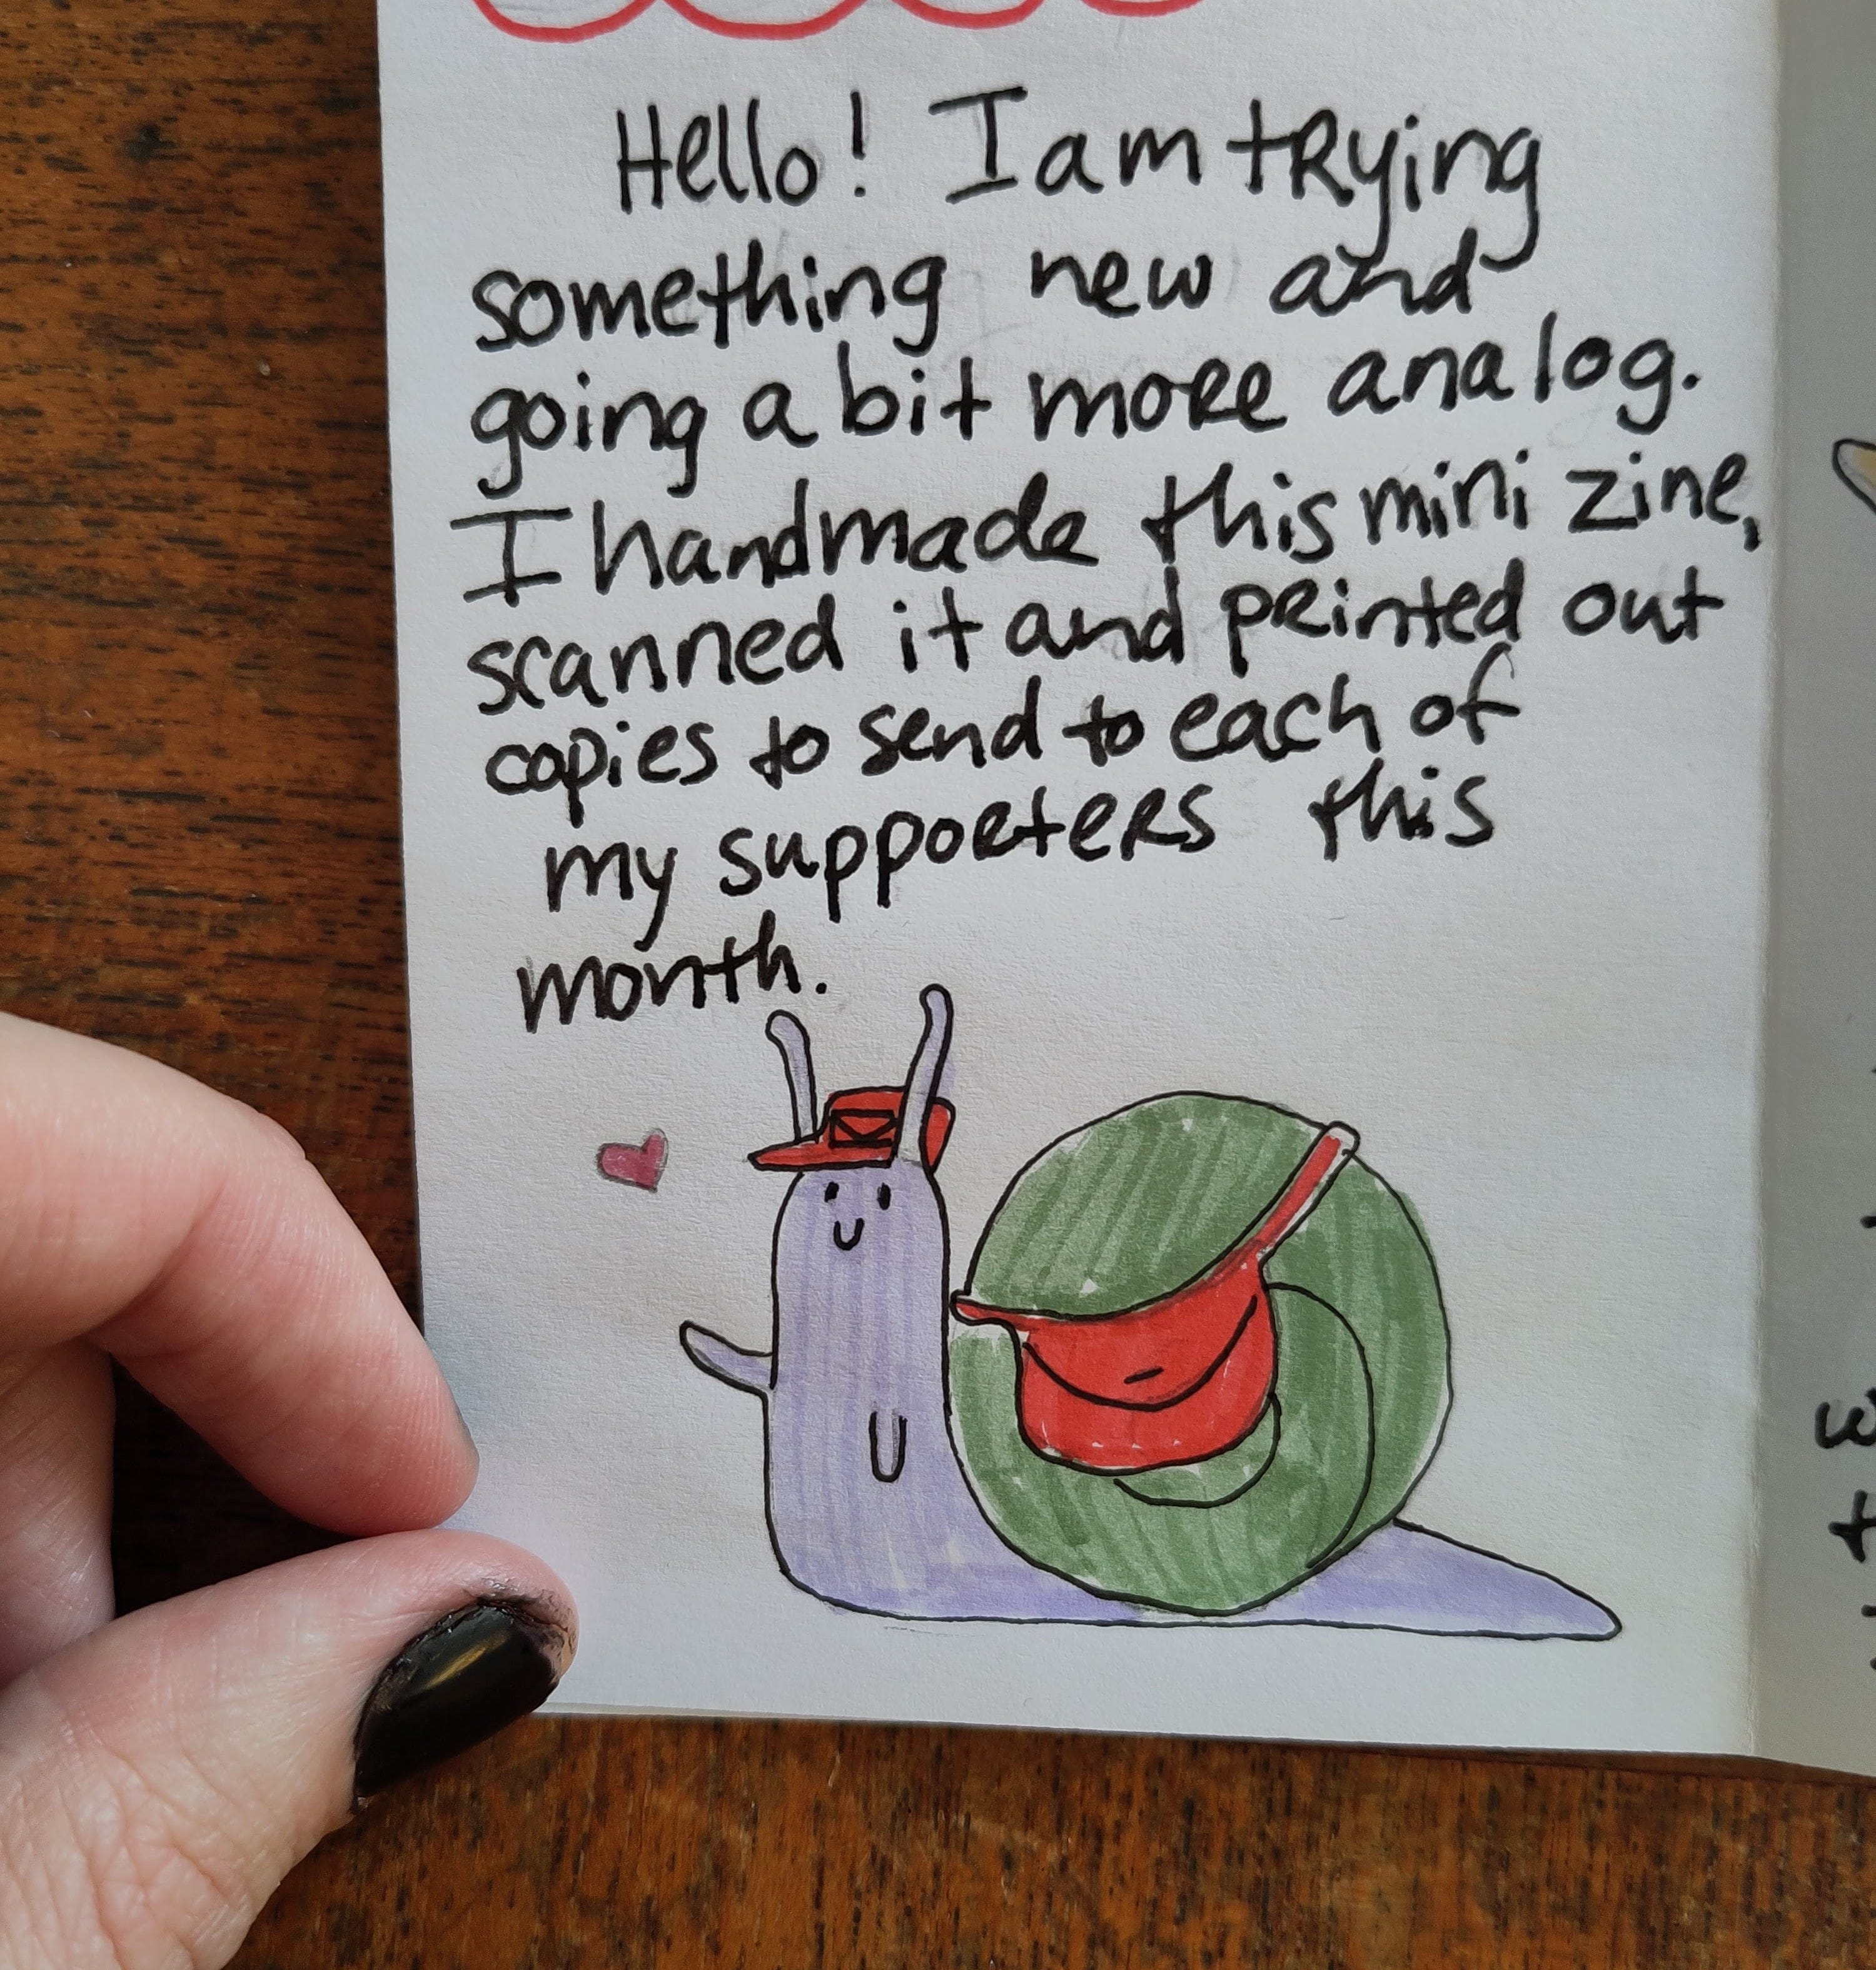 Hello! I am trying
something new and
going a bit more analog.
I handmade this mini zine,
scanned it and printed out
copies to send to each of
my supporters this
month.